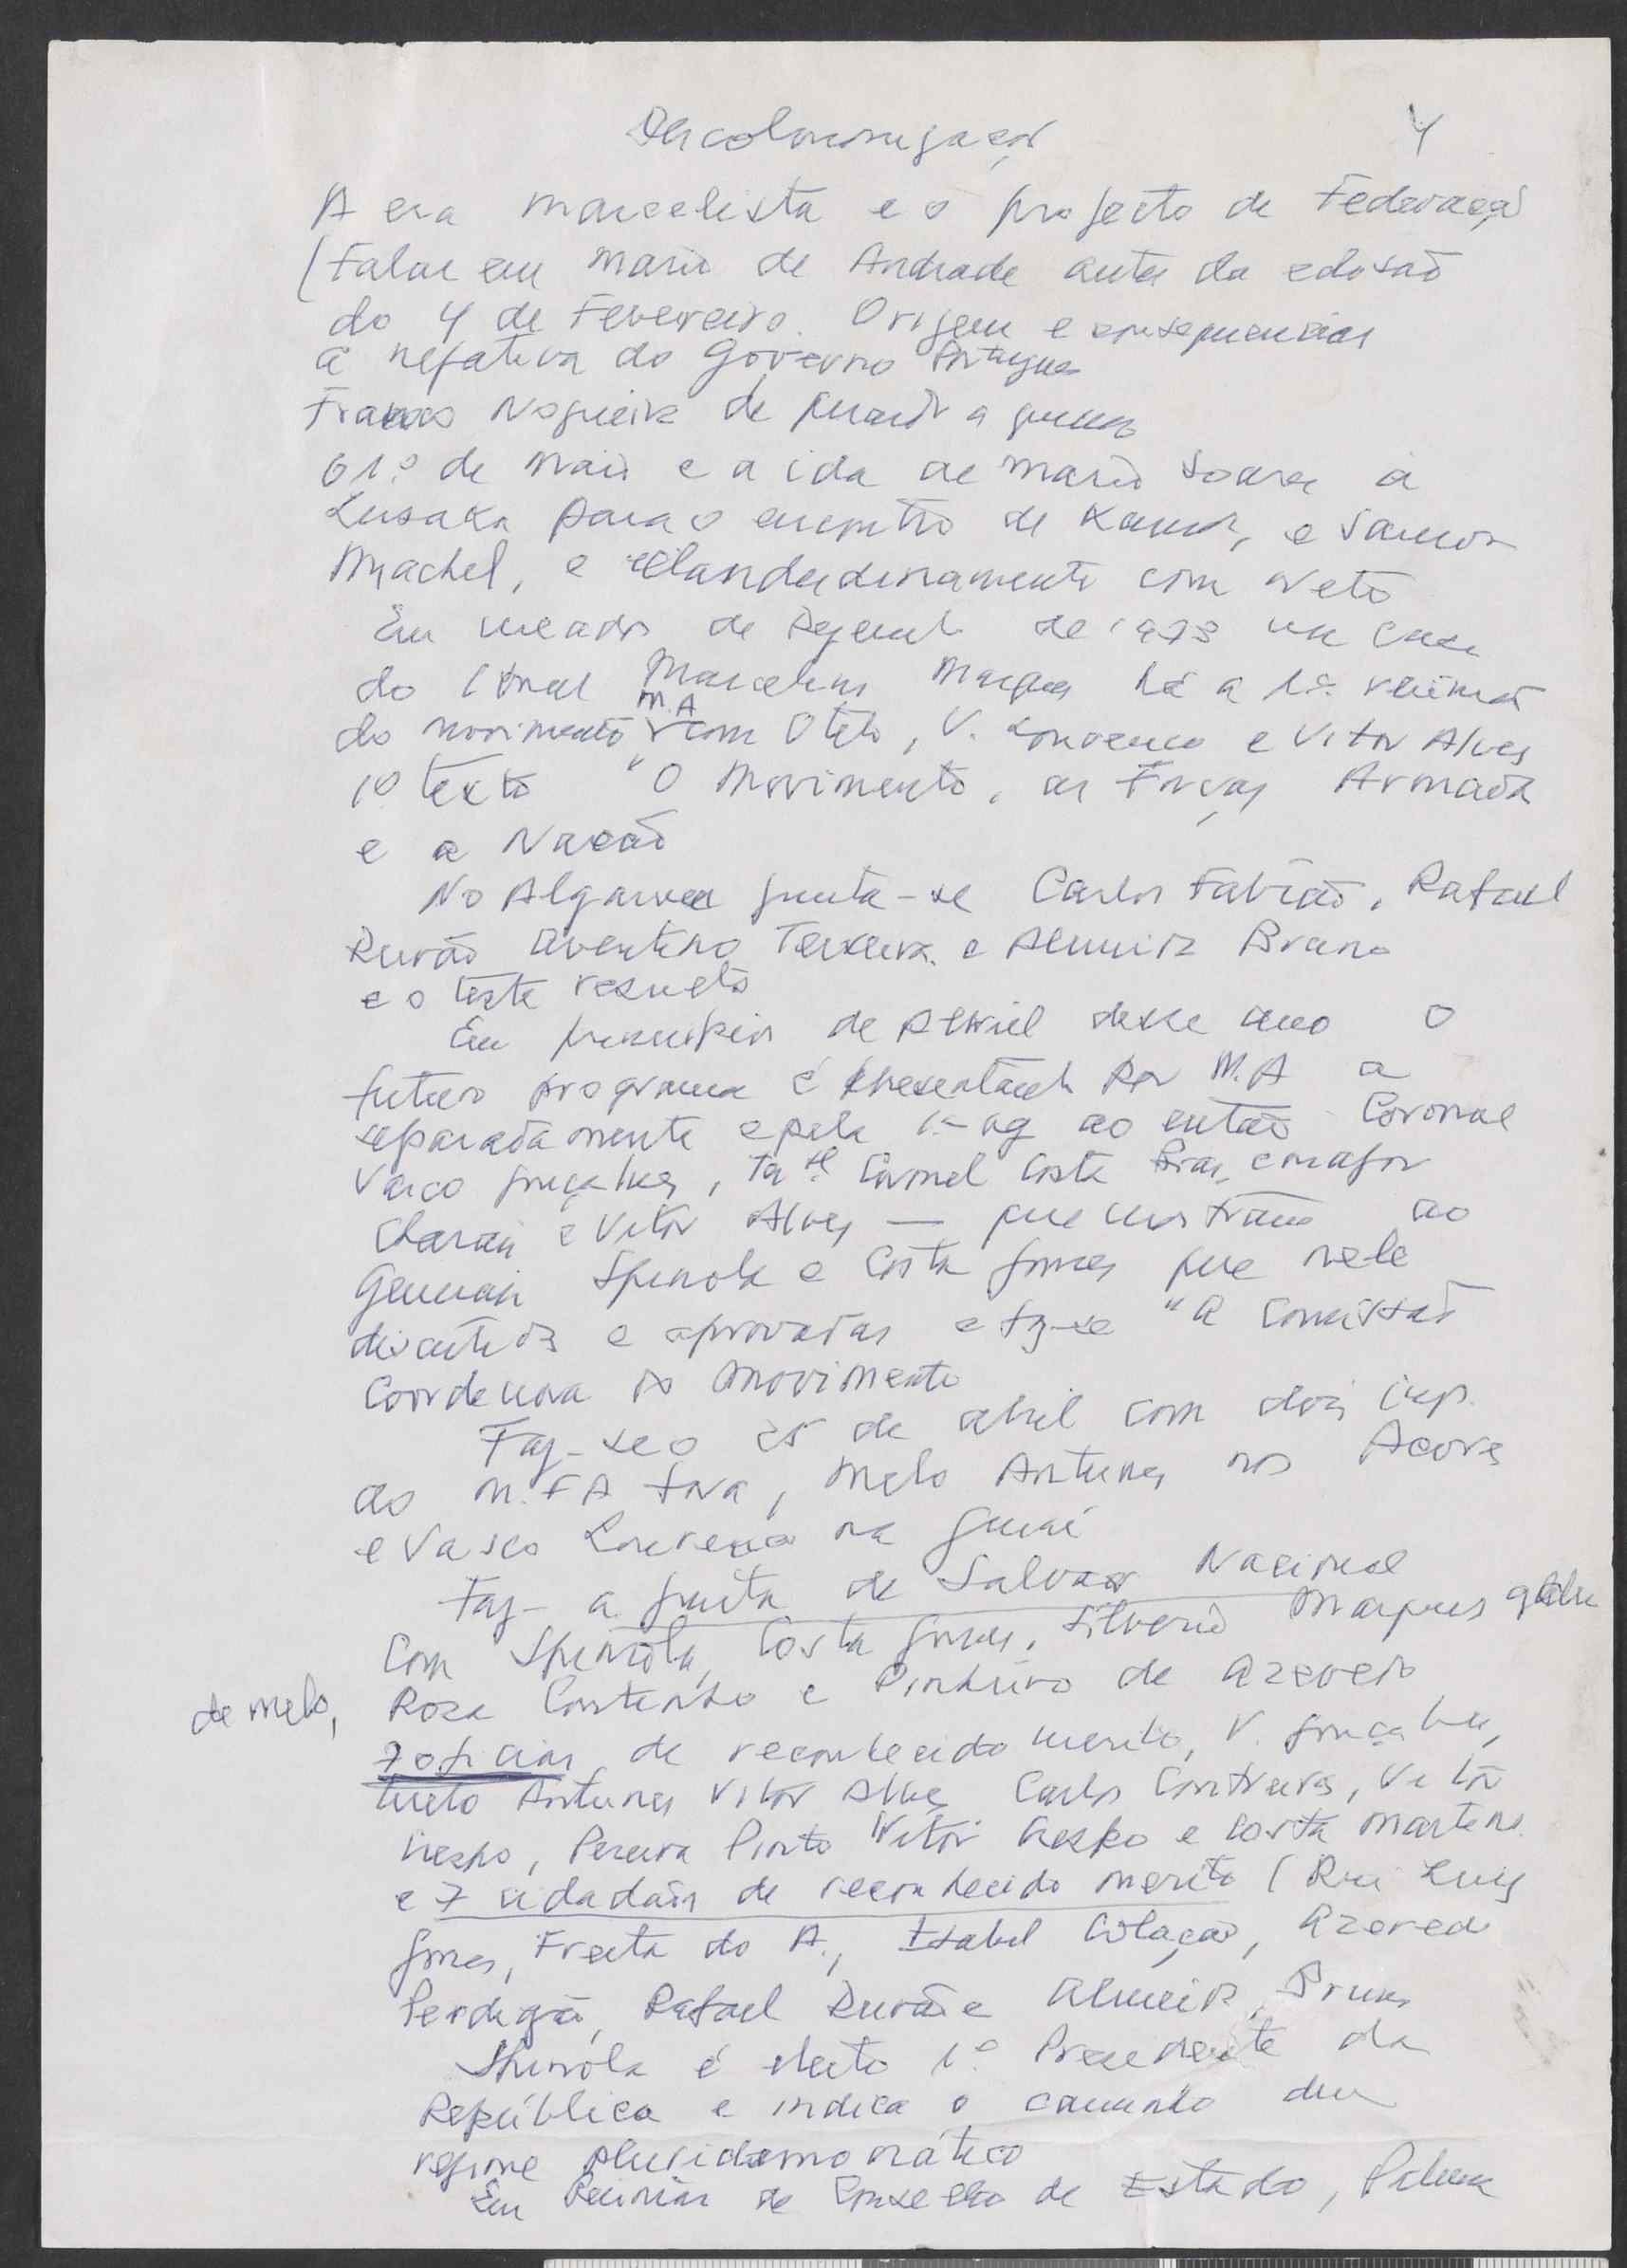 Descolonização 4
A era marcelista e o projecto de Federação
(Falar em Mario de Andrade antes da eclosão
do 4 de Fevereiro. Origem e consequencias
a negativa do Governo Portugues
Franco Nogueira de quando a guerra
O 1º de Maio e a ida de Mario Soares a
Lusaka para o encontro de Kaunda, e Samora
Machel, e clandestinamente com Neto
Em meados de Dezembro de 1973 na casa
do Cornel Marcelino Marques há a 1ª reunião
do movimento M.A com Otelo, V. Lourenço e Vitor Alves
1º texto "O Movimento, as Forças Armadas
e a Nação
No Algarve junta-se Carlos Fabião, Rafael
Durão Aventino Teixeira e Almeida Bruno
e o texto
Em principios de Abril desse ano o
futuro programa é apresentado por M.A a
separadamente e pela 1ª ao então Coronel
Vasco Gonçalves, Coronel Costa Bras, e major
Charais e Vitor Alves — que mostram ao
Generais Spinola e Costa Gomes que nele
discutidas e aprovadas e fez-se "a Comissão
Coordenora do Movimento
Faz-se o 25 de abril com dois
do M.F.A fora, Melo Antunes nos Açores
e Vasco Lourenço na Guiné
Faz- a Junta de Salvação Nacional
Com Spinola, Costa Gomes, Silverio Marques Galvão
de Melo, Rosa Coutinho e Pinheiro de Azevedo
7 oficiais de reconhecido merito, V. Gonçalves,
Melo Antunes Vitor Alves Carlos Contreiras, Vitor
Crespo, Pereira Pinto Vitor Crespo e Costa Martins
e 7 cidadãos de reconhecido merito (Rui Luis
Gomes, Freitas do A., Isabel Colaço, Azeredo
Perdigão, Rafael Durão e Almeida Bruno
Spinola é eleito 1º Presidente da
República e indica o caminho dum
regime pluridemocrático
Em Reunião de Conselho de Estado, Palma